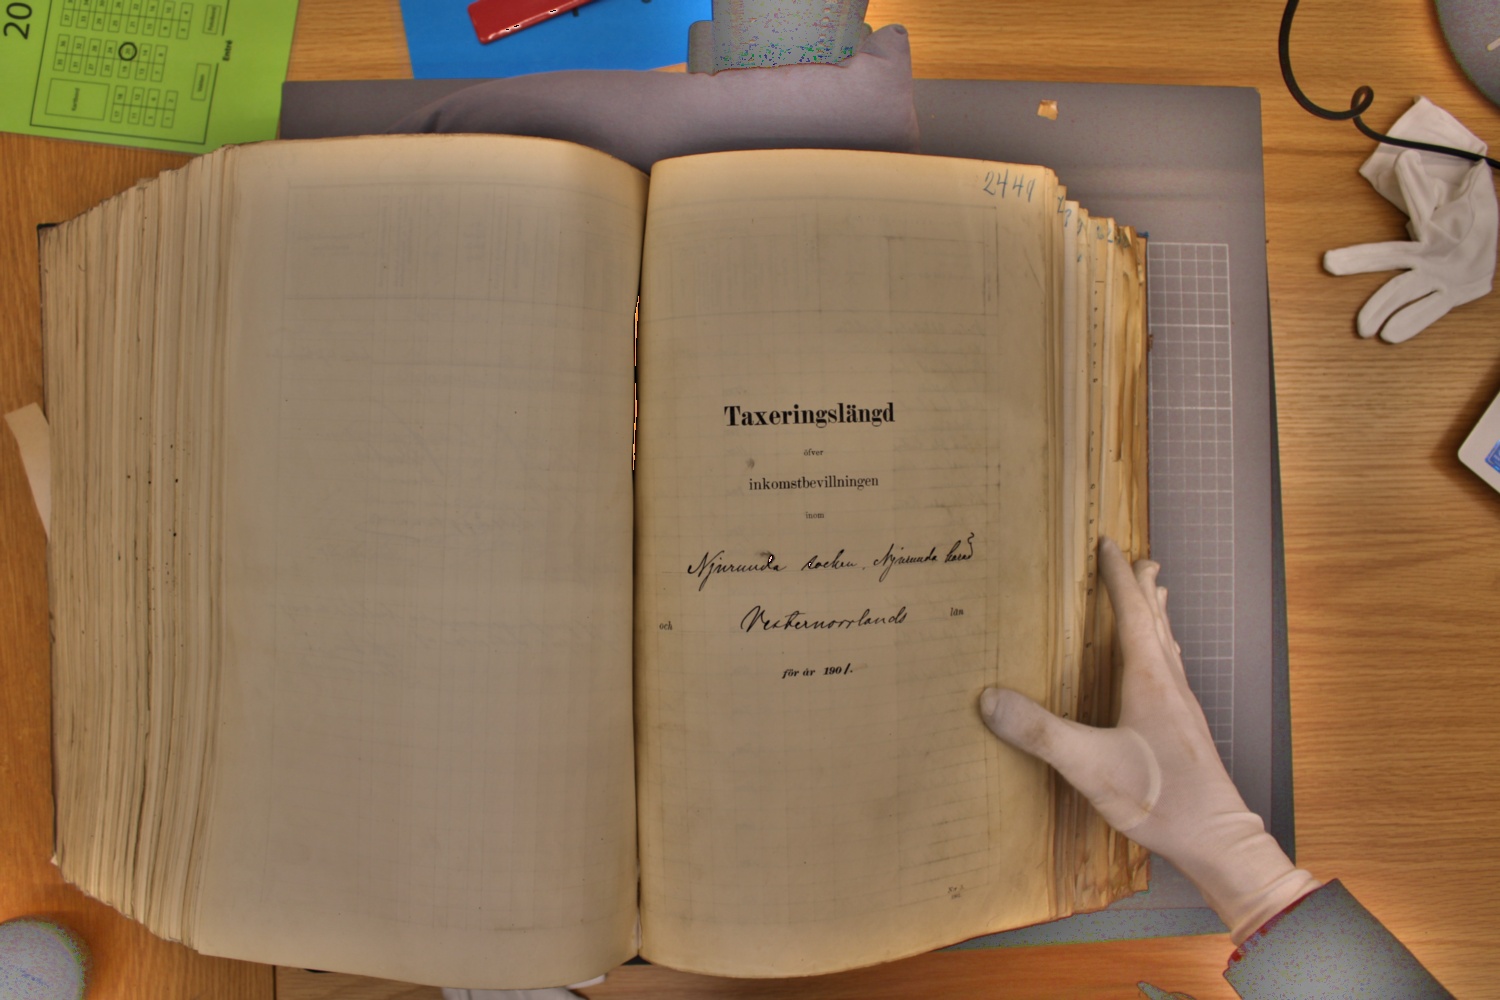 20
Entré
2449
Taxeringslängd
öfver
inkomstbevillningen
inom
Njurunda socken. Njurunda härad
och Vesternorrlands län
för år 1901.